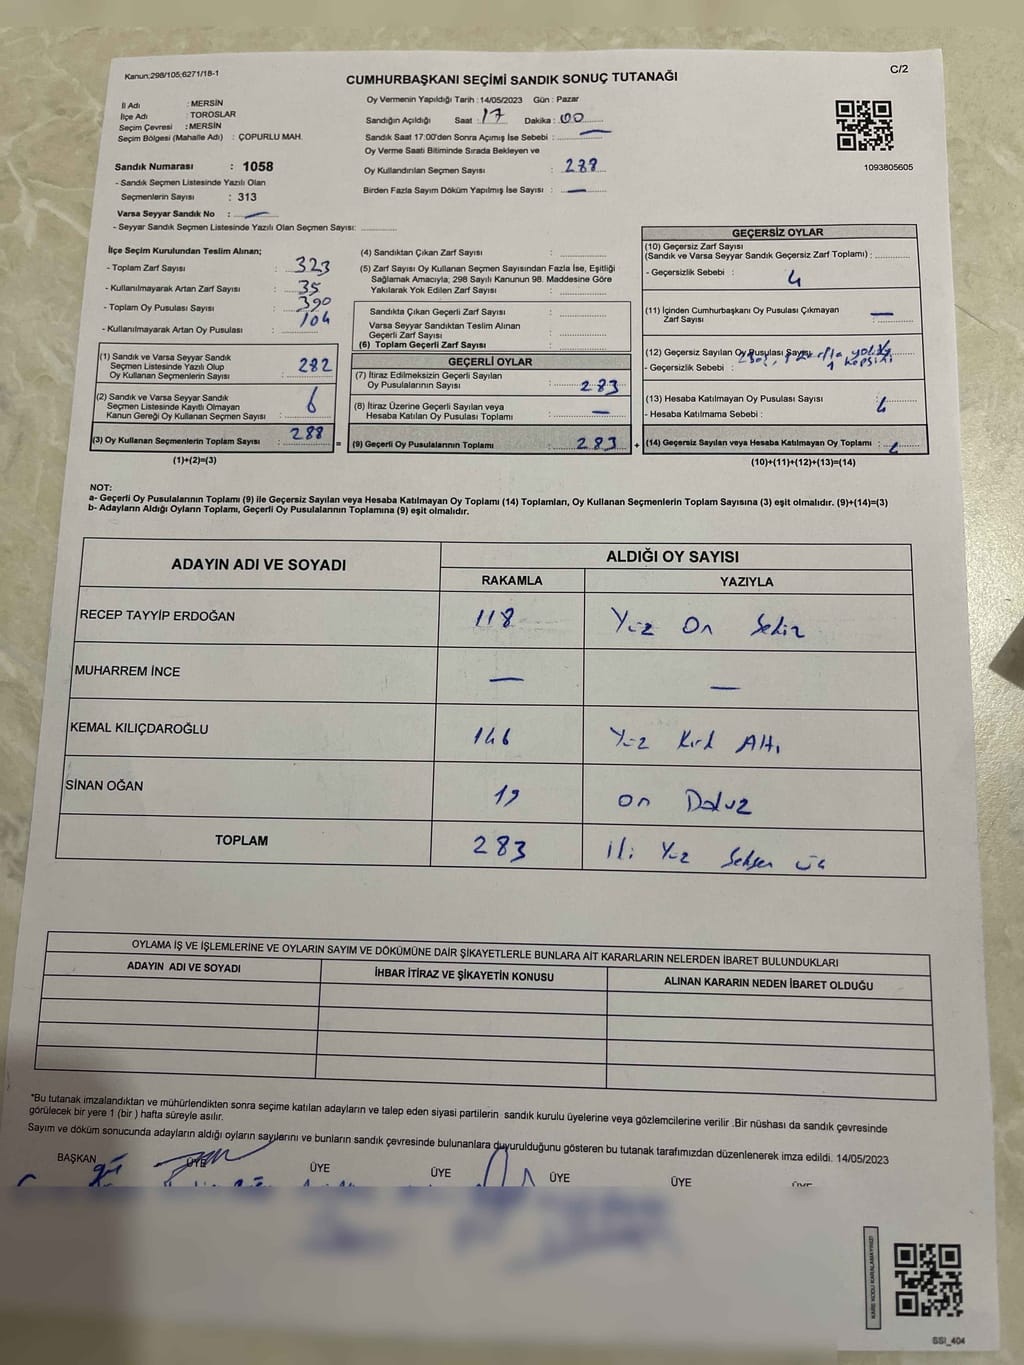 Kanun:298/105;6271/18-1
CUMHURBAŞKANI SEÇİMİ SANDIK SONUÇ TUTANAĞI
C/2
İl Adı : MERSİN
İlçe Adı : TOROSLAR
Seçim Çevresi : MERSİN
Seçim Bölgesi (Mahalle Adı) : ÇOPURLU MAH.
Sandık Numarası : 1058
- Sandık Seçmen Listesinde Yazılı Olan
Seçmenlerin Sayısı : 313
Varsa Seyyar Sandık No : —
- Seyyar Sandık Seçmen Listesinde Yazılı Olan Seçmen Sayısı:
Oy Vermenin Yapıldığı Tarih :14/05/2023 Gün : Pazar
Sandığın Açıldığı Saat : 17 Dakika : 00
Sandık Saat 17:00'den Sonra Açımış İse Sebebi : —
Oy Verme Saati Bitiminde Sırada Bekleyen ve
Oy Kullandırılan Seçmen Sayısı : 288
Birden Fazla Sayım Döküm Yapılmış İse Sayısı : —
1093805605
İlçe Seçim Kurulundan Teslim Alınan;
- Toplam Zarf Sayısı : 323
- Kullanılmayarak Artan Zarf Sayısı : 35
- Toplam Oy Pusulası Sayısı : 390
- Kullanılmayarak Artan Oy Pusulası : 104
(1) Sandık ve Varsa Seyyar Sandık
Seçmen Listesinde Yazılı Olup
Oy Kullanan Seçmenlerin Sayısı : 282
(2) Sandık ve Varsa Seyyar Sandık
Seçmen Listesinde Kayıtlı Olmayan
Kanun Gereği Oy Kullanan Seçmen Sayısı : 6
(3) Oy Kullanan Seçmenlerin Toplam Sayısı : 288
(1)+(2)=(3)
(4) Sandıktan Çıkan Zarf Sayısı :
(5) Zarf Sayısı Oy Kullanan Seçmen Sayısından Fazla İse, Eşitliği
Sağlamak Amacıyla; 298 Sayılı Kanunun 98. Maddesine Göre
Yakılarak Yok Edilen Zarf Sayısı :
Sandıkta Çıkan Geçerli Zarf Sayısı :
Varsa Seyyar Sandıktan Teslim Alınan
Geçerli Zarf Sayısı :
(6) Toplam Geçerli Zarf Sayısı :
GEÇERLİ OYLAR
(7) İtiraz Edilmeksizin Geçerli Sayılan
Oy Pusulalarının Sayısı : 283
(8) İtiraz Üzerine Geçerli Sayılan veya
Hesaba Katılan Oy Pusulası Toplamı : —
= (9) Geçerli Oy Pusulalarının Toplamı : 283
GEÇERSİZ OYLAR
(10) Geçersiz Zarf Sayısı
(Sandık ve Varsa Seyyar Sandık Geçersiz Zarf Toplamı) :
- Geçersizlik Sebebi : 4
(11) İçinden Cumhurbaşkanı Oy Pusulası Çıkmayan
Zarf Sayısı : —
(12) Geçersiz Sayılan Oy Pusulası Sayısı
- Geçersizlik Sebebi :
(13) Hesaba Katılmayan Oy Pusulası Sayısı :
- Hesaba Katılmama Sebebi :
+ (14) Geçersiz Sayılan veya Hesaba Katılmayan Oy Toplamı :
(10)+(11)+(12)+(13)=(14)
NOT:
a- Geçerli Oy Pusulalarının Toplamı (9) ile Geçersiz Sayılan veya Hesaba Katılmayan Oy Toplamı (14) Toplamları, Oy Kullanan Seçmenlerin Toplam Sayısına (3) eşit olmalıdır. (9)+(14)=(3)
b- Adayların Aldığı Oyların Toplamı, Geçerli Oy Pusulalarının Toplamına (9) eşit olmalıdır.
ADAYIN ADI VE SOYADI
ALDIĞI OY SAYISI
RAKAMLA YAZIYLA
RECEP TAYYİP ERDOĞAN 118 Yüz On Sekiz
MUHARREM İNCE — —
KEMAL KILIÇDAROĞLU 146 Yüz Kırk Altı
SİNAN OĞAN 19 On Dokuz
TOPLAM 283 İki Yüz Seksen üç
OYLAMA İŞ VE İŞLEMLERİNE VE OYLARIN SAYIM VE DÖKÜMÜNE DAİR ŞİKAYETLERLE BUNLARA AİT KARARLARIN NELERDEN İBARET BULUNDUKLARI
ADAYIN ADI VE SOYADI İHBAR İTİRAZ VE ŞİKAYETİN KONUSU ALINAN KARARIN NEDEN İBARET OLDUĞU
*Bu tutanak imzalandıktan ve mühürlendikten sonra seçime katılan adayların ve talep eden siyasi partilerin sandık kurulu üyelerine veya gözlemcilerine verilir .Bir nüshası da sandık çevresinde
görülecek bir yere 1 (bir ) hafta süreyle asılır.
Sayım ve döküm sonucunda adayların aldığı oyların sayılarını ve bunların sandık çevresinde bulunanlara duyurulduğunu gösteren bu tutanak tarafımızdan düzenlenerek imza edildi. 14/05/2023
BAŞKAN ÜYE ÜYE ÜYE ÜYE ÜYE ÜYE
KARE KODU KARALAMAYINIZ!
SSI_404